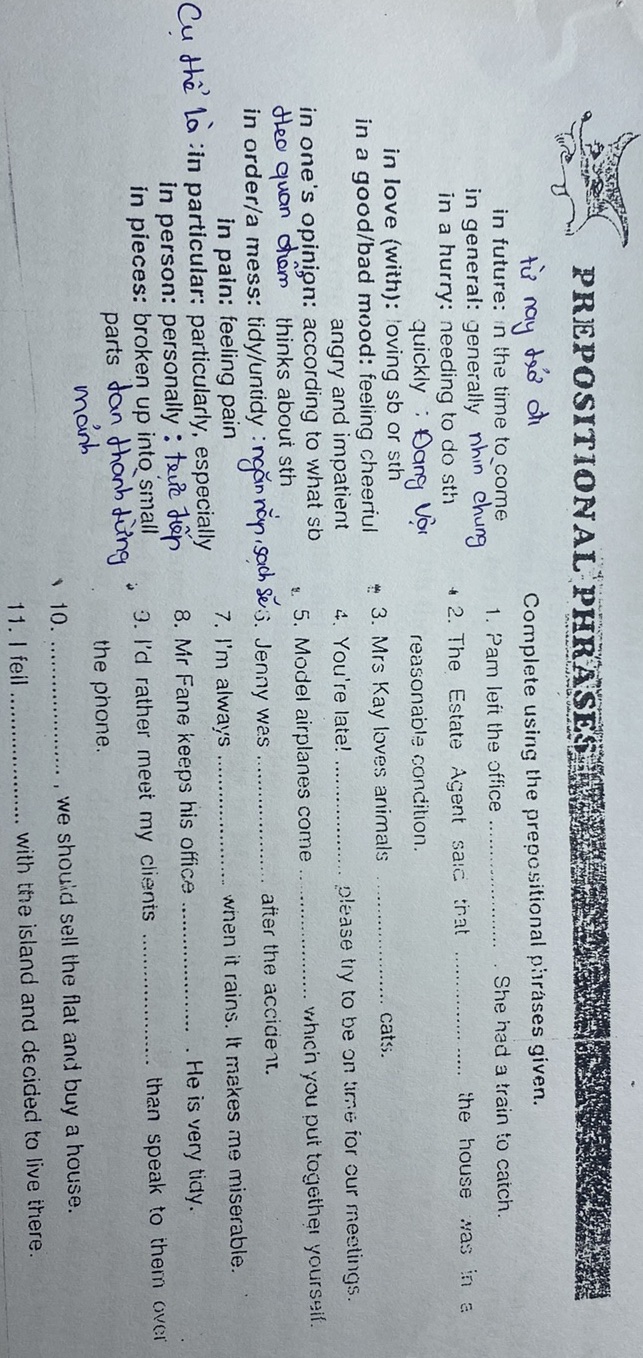 PREPOSITIONAL PHRASES
từ nay trở đi
in future: in the time to come
in general: generally nhìn chung
in a hurry: needing to do sth
quickly : Đang Vội
in love (with): loving sb or sth
in a good/bad mood: feeling cheerful
angry and impatient
in one's opinion: according to what sb
theo quan điểm thinks about sth
in order/a mess: tidy/untidy : ngăn nắp, sạch sẽ
in pain: feeling pain
Cụ thể là : in particular: particularly, especially
in person: personally : trực tiếp
in pieces: broken up into small
parts tan thành từng
mảnh
Complete using the prepositional phrases given.
1. Pam left the office .................... . She had a train to catch.
2. The Estate Agent said that .................... the house was in a
reasonable condition.
3. Mrs Kay loves animals .................... cats.
4. You're late! .................... please try to be on time for our meetings.
5. Model airplanes come .................... which you put together yourself.
6. Jenny was .................... after the accident.
7. I'm always .................... when it rains. It makes me miserable.
8. Mr Fane keeps his office .................... . He is very tidy.
9. I'd rather meet my clients .................... than speak to them over
the phone.
10. .................... , we should sell the flat and buy a house.
11. I fell .................... with the island and decided to live there.